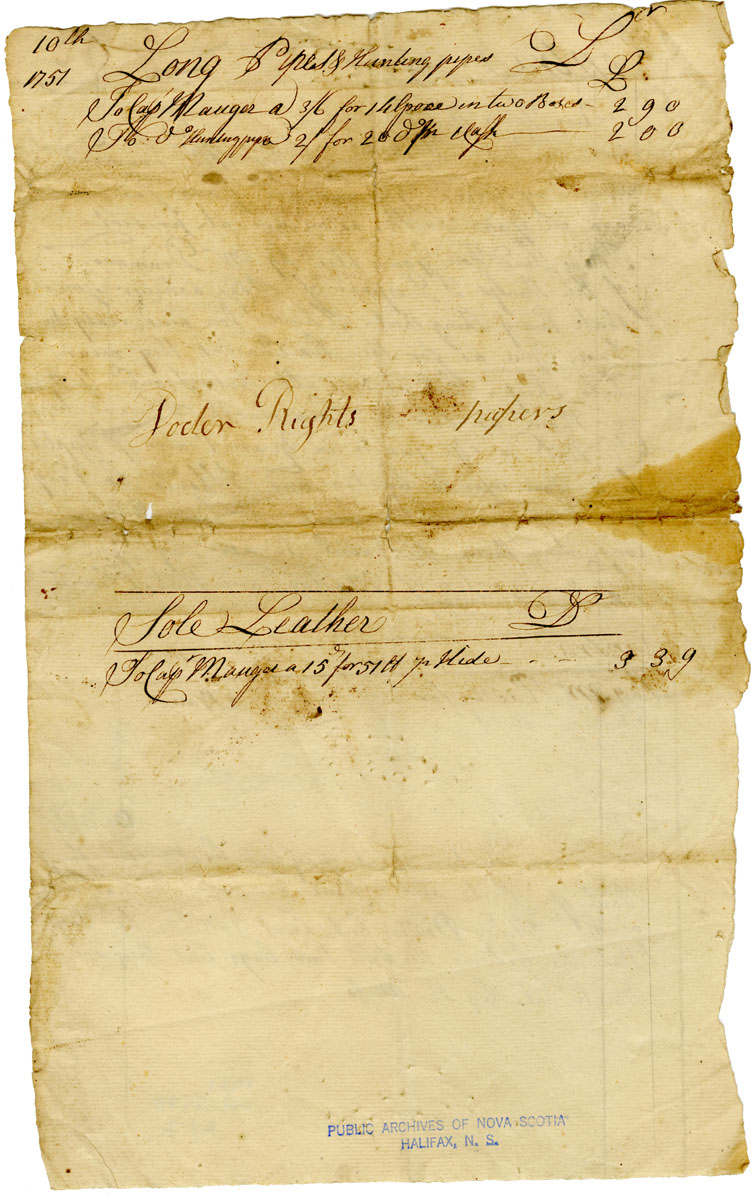 10th
1751 Long Pipes & Hunting pipes Dr
£
To Capt Mauger a 3/6 for 14 Groce in two Boxes - 2 9 0
To Do Hunting pipes 2/ for 20 do 2 0 0
Docter Rights papers
Sole Leather D
To Capt Mauger a 15d for 51 lb p Hide - - - 3 3 9
PUBLIC ARCHIVES OF NOVA SCOTIA
HALIFAX, N. S.